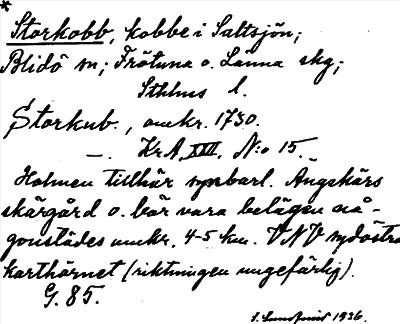 *
Storkobb, kobbe i Saltsjön;
Blidö sn; Frötuna o. Länna skg;
Sthlms l.
Storkub., omkr. 1730.
—„— Kr.A. XVII, N:o 15.
Holmen tillhör uppbarl. Ängskärs
skärgård o. bör vara belägen nå-
gonstädes omkr. 4-5 km. VNV sydöstra
karthörnet (riktningen ungefärlig).
G. 85.
1936.